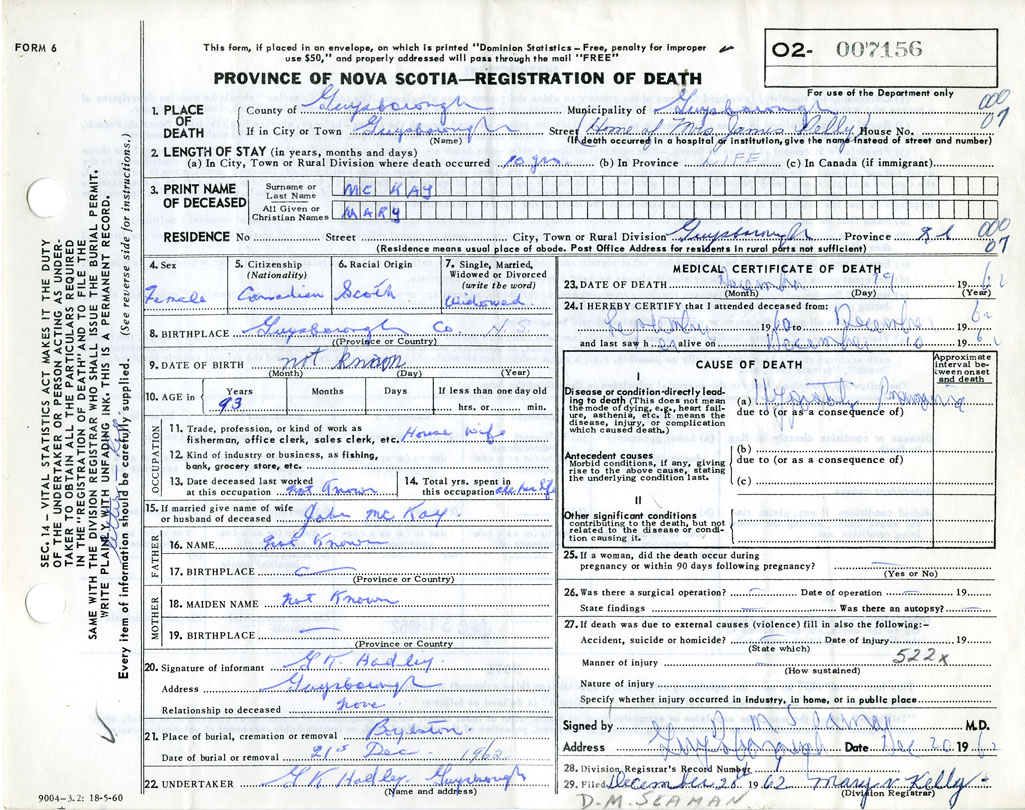 FORM 6
This form, if placed in an envelope, on which is printed "Dominion Statistics – Free, penalty for improper
use $50," and properly addressed will pass through the mail "FREE"
O2- 007156
For use of the Department only
PROVINCE OF NOVA SCOTIA—REGISTRATION OF DEATH
1. PLACE OF DEATH
County of Guysborough Municipality of Guysborough 000
07
If in City or Town Guysborough Street (Home of Mrs James Kelly) House No.
(Name) (If death occurred in a hospital or institution, give the name instead of street and number)
2. LENGTH OF STAY (in years, months and days)
(a) In City, Town or Rural Division where death occurred 10 yrs. (b) In Province LIFE (c) In Canada (if immigrant)
3. PRINT NAME OF DECEASED
Surname or Last Name MC KAY
All Given or Christian Names MARY
RESIDENCE No Street City, Town or Rural Division Guysborough Province 000
07
(Residence means usual place of abode. Post Office Address for residents in rural parts not sufficient)
4. Sex Female
5. Citizenship (Nationality) Canadian
6. Racial Origin Scotch
7. Single, Married, Widowed or Divorced (write the word) Widowed
8. BIRTHPLACE Guysborough Co. N S
(Province or Country)
9. DATE OF BIRTH not known
(Month) (Day) (Year)
10. AGE in Years 93 Months Days If less than one day old
hrs. or min.
OCCUPATION
11. Trade, profession, or kind of work as
fisherman, office clerk, sales clerk, etc. House wife
12. Kind of industry or business, as fishing,
bank, grocery store, etc.
13. Date deceased last worked
at this occupation not Known
14. Total yrs. spent in
this occupation all her life
15. If married give name of wife
or husband of deceased John Mc Kay
FATHER
16. NAME not Known
17. BIRTHPLACE
(Province or Country)
MOTHER
18. MAIDEN NAME not Known
19. BIRTHPLACE
(Province or Country)
20. Signature of informant G K Hadley
Address Guysborough
Relationship to deceased none
21. Place of burial, cremation or removal Boylston
Date of burial or removal 21st Dec. 1962
22. UNDERTAKER G K Hadley Guysborough
(Name and address)
9004–3.2: 18-5-60
MEDICAL CERTIFICATE OF DEATH
23. DATE OF DEATH December 19 1962
(Month) (Day) (Year)
24. I HEREBY CERTIFY that I attended deceased from:
1960 to December 1962
and last saw h er alive on December 10 196
CAUSE OF DEATH
Approximate interval between onset and death
I
Disease or condition directly leading to death (This does not mean the mode of dying, e.g., heart failure, asthenia, etc. It means the disease, injury, or complication which caused death.)
(a) Hypostatic Pneumonia
due to (or as a consequence of)
Antecedent causes
Morbid conditions, if any, giving rise to the above cause, stating the underlying condition last.
(b)
due to (or as a consequence of)
(c)
II
Other significant conditions
contributing to the death, but not related to the disease or condition causing it.
25. If a woman, did the death occur during
pregnancy or within 90 days following pregnancy?
(Yes or No)
26. Was there a surgical operation? Date of operation 19
State findings Was there an autopsy?
27. If death was due to external causes (violence) fill in also the following:–
Accident, suicide or homicide? Date of injury 19
(State which)
Manner of injury 522x
(How sustained)
Nature of injury
Specify whether injury occurred in industry, in home, or in public place
Signed by D M Seaman M.D.
Address Guysborough Date Dec 20 1962
28. Division Registrar's Record Number
29. Filed December 20 1962 Mary V Kelly
(Division Registrar)
D.M. SEAMAN
SEC. 14 – VITAL STATISTICS ACT MAKES IT THE DUTY
OF THE UNDERTAKER OR PERSON ACTING AS UNDER-
TAKER TO OBTAIN ALL THE PARTICULARS REQUIRED
IN THE "REGISTRATION OF DEATH" AND TO FILE THE
SAME WITH THE DIVISION REGISTRAR WHO SHALL ISSUE THE BURIAL PERMIT.
WRITE PLAINLY WITH UNFADING INK. THIS IS A PERMANENT RECORD.
Every item of information should be carefully supplied. (See reverse side for instructions.)